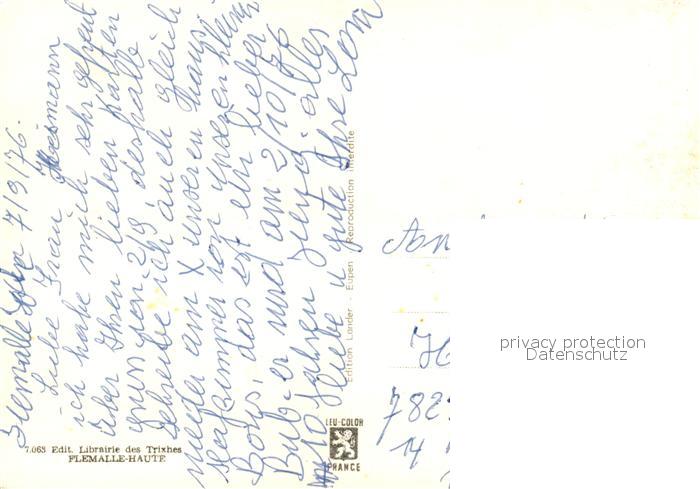 Flemalle 7/9/76.
Liebe Frau
ich habe mich sehr gefreut
über Ihren lieben Karten
gruss von 2/9 deshalb
schreibe ich auch gleich
wieder am X unseren Haus
von unseren kleinen
Boys, das ist ein lieber
Bub er wird am 2/10/76
10 Jahren jierig. alles
liebe u gute Ihre
7.063 Edit. Librairie des Trixhes
FLEMALLE-HAUTE
Edition Lander - Eupen Reproduction Interdite
LEU-COLOR
FRANCE
An
782
14
privacy protection
Datenschutz